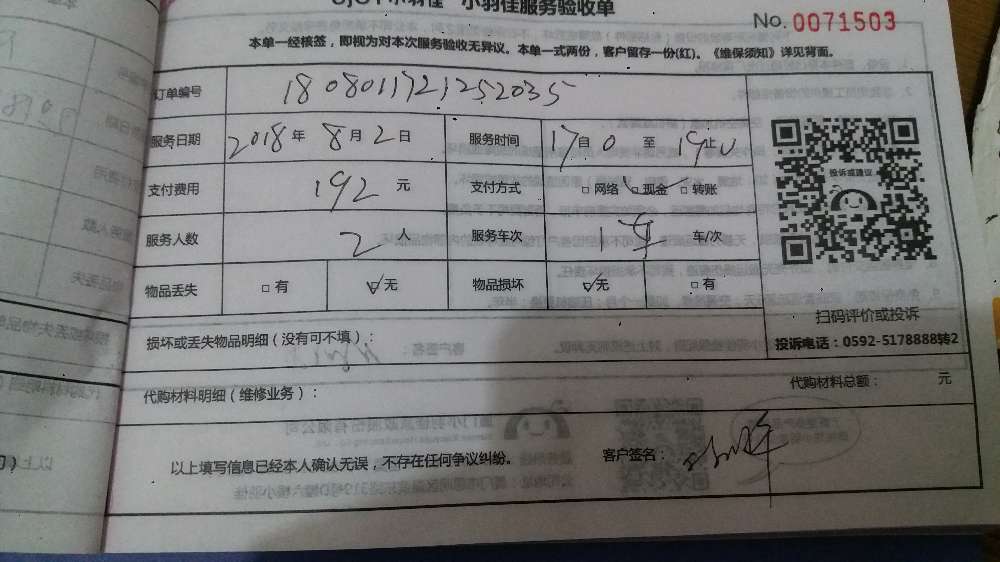 小羽佳服务验收单
No. 0071503
本单一经核签，即视为对本次服务验收无异议。本单一式两份，客户留存一份(红)。《维保须知》详见背面。
订单编号 1808011721252035
服务日期 2018年 8月2日 服务时间 17自0 至 19止0
支付费用 192 元 支付方式 □网络 □现金 □转账
服务人数 2 人 服务车次 1车 车/次
物品丢失 □有 ☑无 物品损坏 ☑无 □有
投诉或建议
扫码评价或投诉
投诉电话：0592-5178888转2
损坏或丢失物品明细（没有可不填）：
代购材料明细（维修业务）： 代购材料总额： 元
以上填写信息已经本人确认无误，不存在任何争议纠纷。 客户签名：